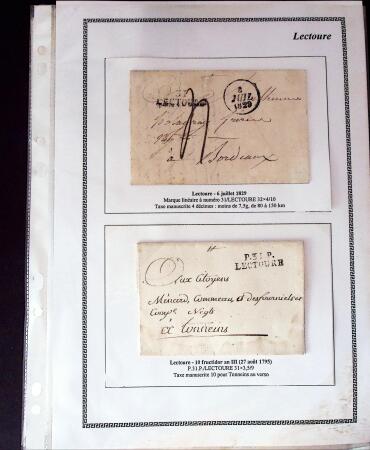 Lectoure
31
LECTOURE
JUIL
1829
à Bordeaux
Lectoure - 6 juillet 1829
Marque linéaire à numéro 31/LECTOURE 32×4/10
Taxe manuscrite 4 décimes : moins de 7,5g, de 80 à 150 km
P.31.P.
LECTOURE
Aux Citoyens
Menard, Commeau et desfournielser
Comp.e Negts
à Tonneins
Lectoure - 10 fructidor an III (27 août 1795)
P.31.P./LECTOURE 31×3,5/9
Taxe manuscrite 10 pour Tonneins au verso